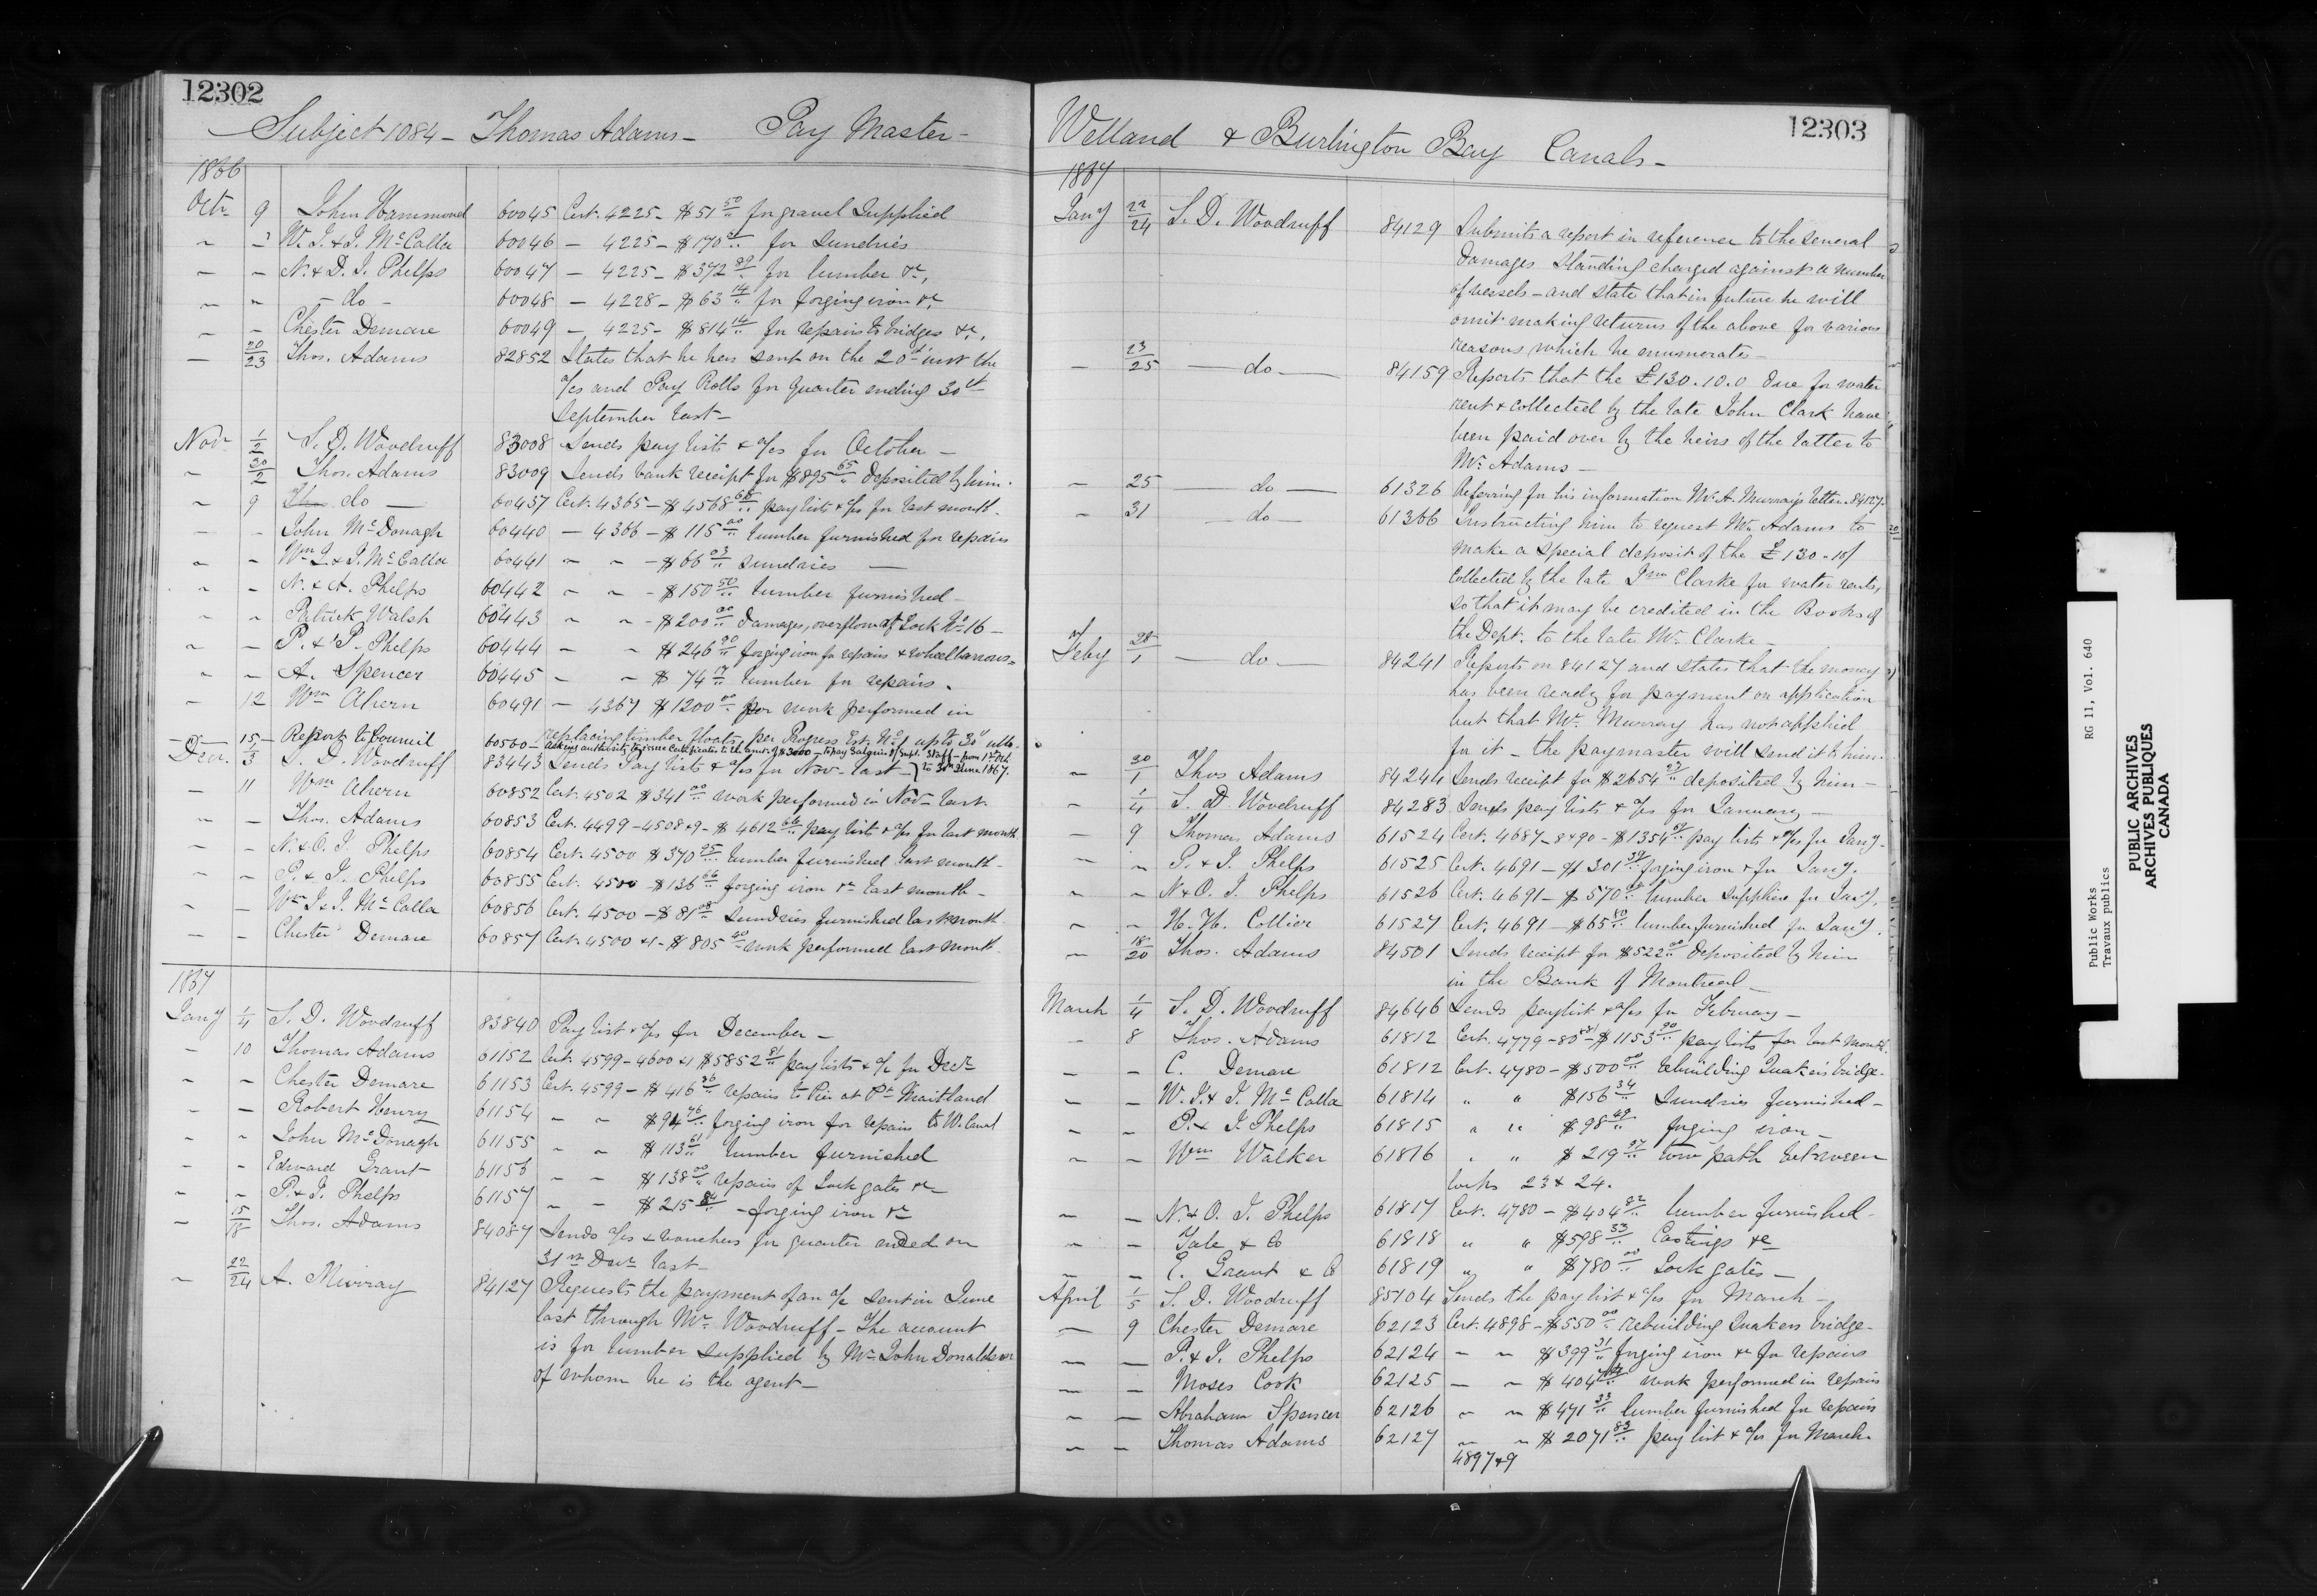 12302
Subject 1084 - Thomas Adams - Pay Master -
1866
Octr 9 John Hammond 60045 Cert. 4225 - $51 50 for gravel supplied
" " W. J. & J. McCalla 60046 - 4225 - $170 for sundries
- - N. & D. J. Phelps 60047 - 4225 - $372 89 for lumber &c,
" " - do - 60048 - 4228 - $63 14 for forging iron &c
- - Chester Demare 60049 - 4225 - $814 14 for repairs to bridges &c.
- 20/23 Thos. Adams 82852 States that he has sent on the 20th inst the
a/cs and Pay Rolls for quarter ending 30th
September last -
Novr 1/2 S. D. Woodruff 83008 Sends pay lists & a/cs for October -
" 30/2 Thos. Adams 83009 Sends bank receipt for $895 65 deposited by him.
" 9 do - 60437 Cert. 4365 - $4568 68 pay lists & a/cs for last month.
- - John McDonagh 60440 - 4366 - $115 00 lumber furnished for repairs
" " Wm J. & J. McCalla 60441 " " - $66 03 sundries -
" " N. & A. Phelps 60442 " " - $150 50 lumber furnished -
" " Patrick Walsh 60443 " " - $200 00 damages, overflow at Lock No 16 -
" - P. & J. Phelps 60444 - " $246 90 forging iron for repairs & wheelbarrows -
" - A. Spencer 60445 - " $74 17 lumber for repairs.
- 12 Wm Ahern 60491 - 4367 $1200 00 for work performed in
replacing timber floats, per Progress Est. No 1 up to 30th ulto.
- 15 - Report to Council 60560 - asking authority to issue certificates to the amt. of $3000 - to pay Salaries of Supt. Staff - from 1st Oct.
to 30th June 1867.
Decr. 1/3 S. D. Woodruff 83443 Sends Pay lists & a/cs for Nov. last -
- 11 Wm Ahern 60852 Cert. 4502 $341 00 work performed in Novr last.
" - Thos. Adams 60853 Cert. 4499 - 4508 & 9 - $4612 66 pay lists & a/cs for last month.
- - N. & O. J. Phelps 60854 Cert. 4500 $370 95 lumber furnished last month -
" - P. & J. Phelps 60855 Cert. 4500 - $136 66 forging iron &c last month -
" - Wm J. & J. McCalla 60856 Cert. 4500 - $81 08 sundries furnished last month.
- - Chester Demare 60857 Cert. 4500 & 1 - $805 40 work performed last month.
1867
Jany 1/4 S. D. Woodruff 83840 Pay list & a/cs for December -
- 10 Thomas Adams 61152 Cert. 4599 - 4600 & 1 $5852 81 pay lists & a/c for Decr
- - Chester Demare 61153 Cert. 4599 - $416 36 repairs to Pier at Pt Maitland
- - Robert Henry 61154 - - $94 46 forging iron for repairs to W. Canal
" - John McDonagh 61155 " " $113 61 lumber furnished
- - Edward Grant 61156 - - $138 00 repairs of Lock gates &c
" " P. & J. Phelps 61157 " - $215 84 - forging iron &c
- 15/18 Thos. Adams 84087 Sends a/cs & vouchers for quarter ended on
31st Decr last -
" 22/24 A. Murray 84127 Requests the payment of an a/c sent in June
last through Mr. Woodruff - The account
is for lumber supplied by Mr John Donaldson
of whom he is the agent -
12303
Welland & Burlington Bay Canals -
1867
Jany 22/24 S. D. Woodruff 84129 Submits a report in reference to the several
damages standing charged against a number
of vessels - and state that in future he will
omit making returns of the above for various
reasons which he enumerates -
- 23/25 - do - 84159 Reports that the £130.10.0 due for water
rent & collected by the late John Clark have
been paid over by the heirs of the latter to
Mr. Adams -
- 25 do - 61326 Referring for his information Mr. A. Murray's letter 84127.
- 31 - do - 61366 Instructing him to request Mr. Adams to
make a special deposit of the £130-10/
collected by the late Jno Clarke for water rents,
so that it may be credited in the Books of
the Dept. to the late Mr. Clarke -
Feby 28/1 - do - 84241 Reports on 84127 and states that the money
has been ready for payment on application
but that Mr. Murray has not applied
for it - the paymaster will send it to him.
- 30/1 Thos Adams 84244 Sends receipt for $2654 93 deposited by him -
- 1/4 S. D. Woodruff 84283 Sends pay lists & a/cs for January -
- 9 Thomas Adams 61524 Cert. 4687 - 8 & 90 - $1354 pay lists & a/cs for Jany -
- " P. & J. Phelps 61525 Cert. 4691 - $301 39 forging iron & for Jany.
" " N. & O. J. Phelps 61526 Cert. 4691 - $570 lumber supplied for Jany.
" " H. H. Collier 61527 Cert. 4691 - $65 80 lumber furnished for Jany.
- 18/20 Thos. Adams 84501 Sends receipt for $522 00 deposited by him
in the Bank of Montreal -
March 1/4 S. D. Woodruff 84646 Sends paylist & a/cs for February -
- 8 Thos. Adams 61812 Cert. 4779 - 80 & 81 - $1153 90 pay lists for last month.
- - C. Demare 61812 Cert. 4780 - $500 00 rebuilding Quakers bridge.
- - W. J. & J. McCalla 61814 " " $156 34 Sundries furnished -
- - P. & J. Phelps 61815 " " $98 49 forging iron -
" - Wm Walker 61816 " " $219 37 tow path between
locks 23 & 24.
" - N. & O. J. Phelps 61817 Cert. 4780 - $404 82 lumber furnished -
- - Yale & Co 61818 " " $598 33 Castings &c
" - E. Grant & Co 61819 " " $780 00 Lock gates -
April 1/5 S. D. Woodruff 85104 Sends the pay list & a/cs for March -
- 9 Chester Demare 62123 Cert. 4898 - $550 00 rebuilding Quakers bridge -
- - P. & J. Phelps 62124 - " $399 31 forging iron &c for repairs
- - Moses Cook 62125 - " $404 work performed in repairs
" - Abraham Spencer 62126 " " $471 33 lumber furnished for repairs
" - Thomas Adams 62127 " " $2071 83 pay list & a/cs for March.
4897 & 9
Public Works RG 11, Vol. 640
Travaux publics
PUBLIC ARCHIVES
ARCHIVES PUBLIQUES
CANADA